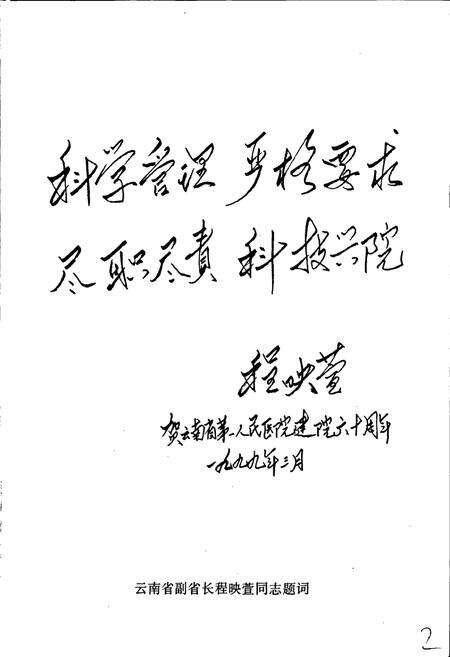 科学管理 严格要求
尽职尽责 科技兴院
程映萱
贺云南省第一人民医院建院六十周年
一九九九年三月
云南省副省长程映萱同志题词
2